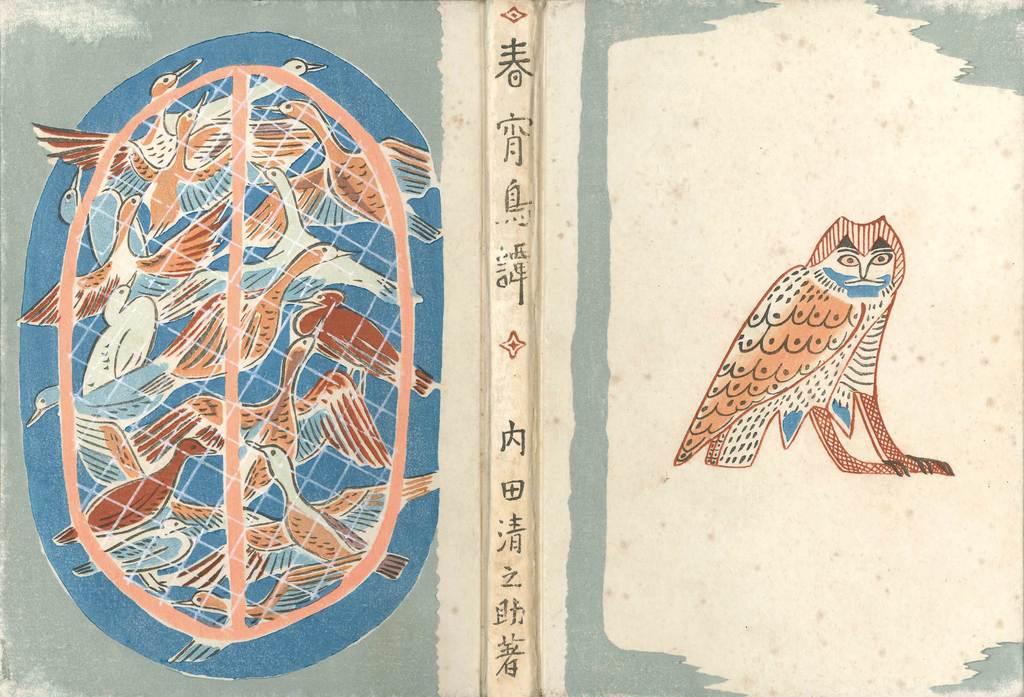 春宵鳥譚
内田清之助著